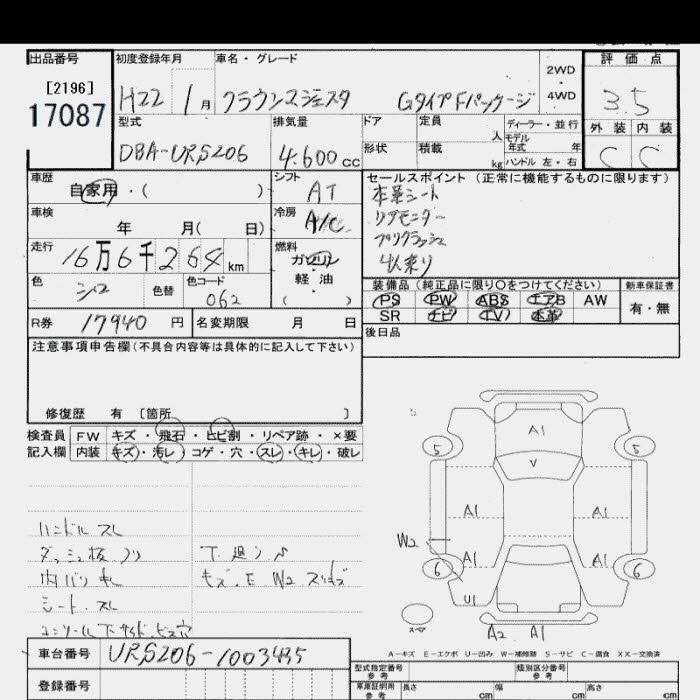 出品番号
[2196]
17087
初度登録年月
H22 1月
車名・グレード
クラウンマジェスタ Gタイプ Fパッケージ
2WD
・
4WD
評価点
3.5
外装 内装
C C
型式
DBA-URS206
排気量
4.600cc
ドア
定員
人
形状
積載
kg
ディーラー・並行
モデル
年式 年
ハンドル 左・右
車歴
自家用・( )
シフト
AT
セールスポイント (正常に機能するものに限ります)
本革シート
リアモニター
プリクラッシュ
4人乗り
車検
年 月( 日)
冷房
A/C
走行
16万6千264km
燃料
ガソリン
軽・油
( )
色
シロ
色替
色コード
062
装備品(純正品に限り○をつけてください)
新車保証書
PS PW ABS エアB AW
SR ナビ TV 本革
有・無
R券 17940円
名変期限 月 日
後日品
注意事項申告欄(不具合内容等は具体的に記入して下さい)
修復歴 有 [箇所 ]
検査員
記入欄
FW キズ・飛石・ヒビ割・リペア跡・×要
内装 キズ・汚レ・コゲ・穴・スレ・キレ・破レ
ハンドル スレ
ダッシュ板
内バリ キレ
シート・スレ
コンソール下 ビス穴
A1
V
5 5
A1 A1
W2
A1 A1
6 6
U1
A2 A1
A=キズ E=エクボ U=凹み W=補修跡 S=サビ C=腐食 XX=交換済
車台番号 URS206-1003435
登録番号
型式指定番号
参考
類別区分番号
参考
車庫証明用
参考
長さ cm 幅 cm 高さ cm